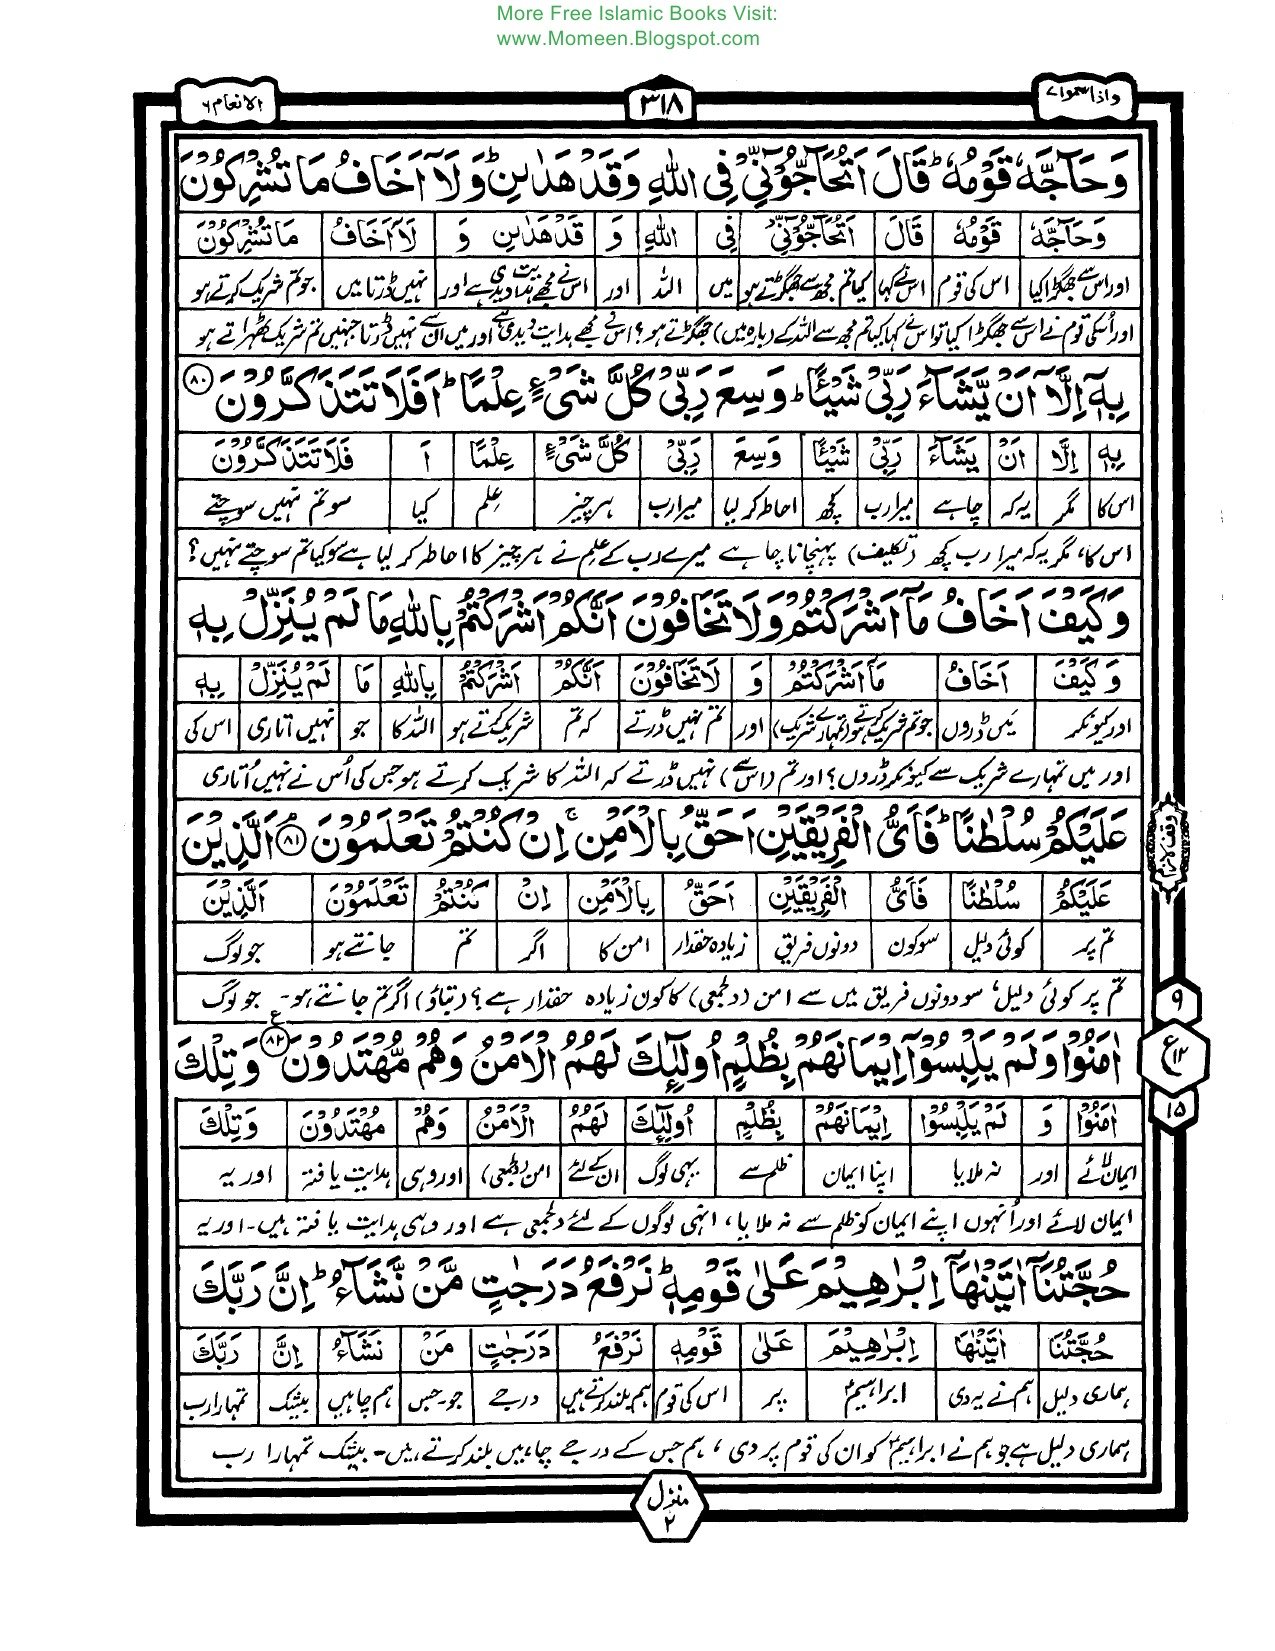 More Free Islamic Books Visit:
www.Momeen.Blogspot.com
واذا سمعوا ۷
۳۱۸
الانعام ۶
وَحَآجَّهٗ قَوْمُهٗ ؕ قَالَ اَتُحَآجُّوْٓنِّیْ فِی اللّٰهِ وَقَدْ هَدٰىنِ ؕ وَلَآ اَخَافُ مَا تُشْرِكُوْنَ
وَحَآجَّهٗ قَوْمُهٗ قَالَ اَتُحَآجُّوْٓنِّیْ فِی اللّٰهِ وَ قَدْ هَدٰىنِ وَ لَآ اَخَافُ مَا تُشْرِكُوْنَ
اور اس سے جھگڑا کیا اس کی قوم اس نے کہا کیا تم مجھ سے جھگڑتے ہو میں اللہ اور اس نے مجھے ہدایت دیدی ہے اور نہیں ڈرتا میں جو تم شریک کرتے ہو
اور اُسکی قوم نے اس سے جھگڑا کیا تو اس نے کہا کیا تم مجھ سے اللہ کے (بارہ میں) جھگڑتے ہو؟ اس نے مجھے ہدایت دیدی ہے اور میں ان سے نہیں ڈرتا جنہیں تم شریک ٹھہراتے ہو
بِهٖٓ اِلَّآ اَنْ یَّشَآءَ رَبِّیْ شَیْـًٔا ؕ وَسِعَ رَبِّیْ كُلَّ شَیْءٍ عِلْمًا ؕ اَفَلَا تَتَذَكَّرُوْنَ ۸۰
بِهٖٓ اِلَّآ اَنْ یَشَآءَ رَبِّیْ شَیْـًٔا وَسِعَ رَبِّیْ كُلَّ شَیْءٍ عِلْمًا اَ فَلَا تَتَذَكَّرُوْنَ
اس کا مگر یہ کہ چاہے میرا رب کچھ احاطہ کر لیا میرا رب ہر چیز علم کیا سو تم نہیں سوچتے
اس کا، مگر یہ کہ میرا رب کچھ (تکلیف) پہنچانا چاہے میرے رب کے علم نے ہر چیز کا احاطہ کر لیا ہے سو کیا تم سوچتے نہیں؟
وَكَیْفَ اَخَافُ مَآ اَشْرَكْتُمْ وَلَا تَخَافُوْنَ اَنَّكُمْ اَشْرَكْتُمْ بِاللّٰهِ مَا لَمْ یُنَزِّلْ بِهٖ
وَكَیْفَ اَخَافُ مَآ اَشْرَكْتُمْ وَ لَا تَخَافُوْنَ اَنَّكُمْ اَشْرَكْتُمْ بِاللّٰهِ مَا لَمْ یُنَزِّلْ بِهٖ
اور کیونکر میں ڈروں جو تم شریک کرتے ہو (تمہارے شریک) اور تم نہیں ڈرتے کہ تم شریک کرتے ہو اللہ کا جو نہیں اتاری اس کی
اور میں تمہارے شریک سے کیونکر ڈروں؟ اور تم (اس سے) نہیں ڈرتے کہ اللہ کا شریک کرتے ہو جس کی اُس نے نہیں اُتاری
عَلَیْكُمْ سُلْطٰنًا ؕ فَاَیُّ الْفَرِیْقَیْنِ اَحَقُّ بِالْاَمْنِ ۚ اِنْ كُنْتُمْ تَعْلَمُوْنَ ۸۱ۘ اَلَّذِیْنَ
عَلَیْكُمْ سُلْطٰنًا فَاَیُّ الْفَرِیْقَیْنِ اَحَقُّ بِالْاَمْنِ اِنْ كُنْتُمْ تَعْلَمُوْنَ اَلَّذِیْنَ
تم پر کوئی دلیل سو کون دونوں فریق زیادہ حقدار امن کا اگر تم جانتے ہو جو لوگ
تم پر کوئی دلیل، سو دونوں فریق میں سے امن (دلجمعی) کا کون زیادہ حقدار ہے؟ (بتاؤ) اگر تم جانتے ہو۔ جو لوگ
اٰمَنُوْا وَلَمْ یَلْبِسُوْٓا اِیْمَانَهُمْ بِظُلْمٍ اُولٰٓئِكَ لَهُمُ الْاَمْنُ وَهُمْ مُّهْتَدُوْنَ ۸۲ ع وَتِلْكَ
اٰمَنُوْا وَ لَمْ یَلْبِسُوْٓا اِیْمَانَهُمْ بِظُلْمٍ اُولٰٓئِكَ لَهُمُ الْاَمْنُ وَهُمْ مُهْتَدُوْنَ وَتِلْكَ
ایمان لائے اور نہ ملایا اپنا ایمان ظلم سے یہی لوگ ان کے لئے امن (دلجمعی) اور وہی ہدایت یافتہ اور یہ
ایمان لائے اور اُنہوں اپنے ایمان کو ظلم سے نہ ملایا، انہی لوگوں کے لئے دلجمعی ہے اور وہی ہدایت یافتہ ہیں۔ اور یہ
حُجَّتُنَآ اٰتَیْنٰهَآ اِبْرٰهِیْمَ عَلٰی قَوْمِهٖ ؕ نَرْفَعُ دَرَجٰتٍ مَّنْ نَّشَآءُ ؕ اِنَّ رَبَّكَ
حُجَّتُنَآ اٰتَیْنٰهَآ اِبْرٰهِیْمَ عَلٰی قَوْمِهٖ نَرْفَعُ دَرَجٰتٍ مَنْ نَشَآءُ اِنَّ رَبَّكَ
ہماری دلیل ہم نے یہ دی ابراہیمؑ پر اس کی قوم ہم بلند کرتے ہیں درجے جو۔جس ہم چاہیں بیشک تمہارا رب
ہماری دلیل ہے جو ہم نے ابراہیمؑ کو ان کی قوم پر دی، ہم جس کے درجے چاہیں بلند کرتے ہیں۔ بیشک تمہارا رب
وقف لازم
۹
ع ۱۲
۱۵
منزل
۲